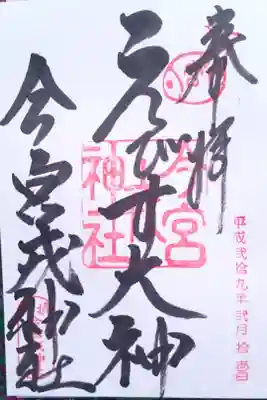 奉拝
平成弐拾九年弐月拾壱日
ゑびす大神
今宮戎神社
今宮戎神社